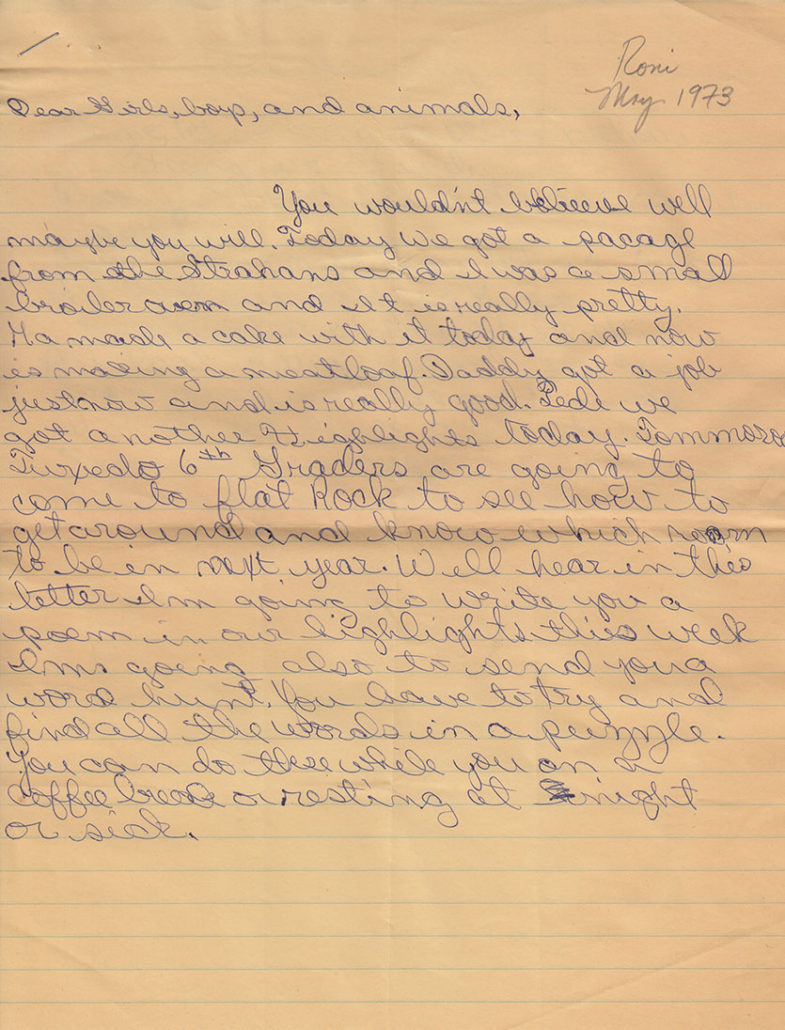 Roni
May 1973
Dear Girls, boys, and animals,
You wouldn't believe well
maybe you will. Today we got a pacage
from the Strahans and I was a small
broiler oven and It is really pretty.
Ma made a cake with it today and now
is making a meatloaf. Daddy got a job
just now and is really good. we
got another Highlights today. Tommorow
Tuxedo 6th Graders are going to
come to flat Rock to see how to
get around and know which room
to be in next year. Well hear in this
letter I'm going to write you a
poem in our highlights this week
I'm going also to send you a
word hunt. You have to try and
find all the words in a puzzle.
You can do these while you on a
coffee break or resting at night
or sick.